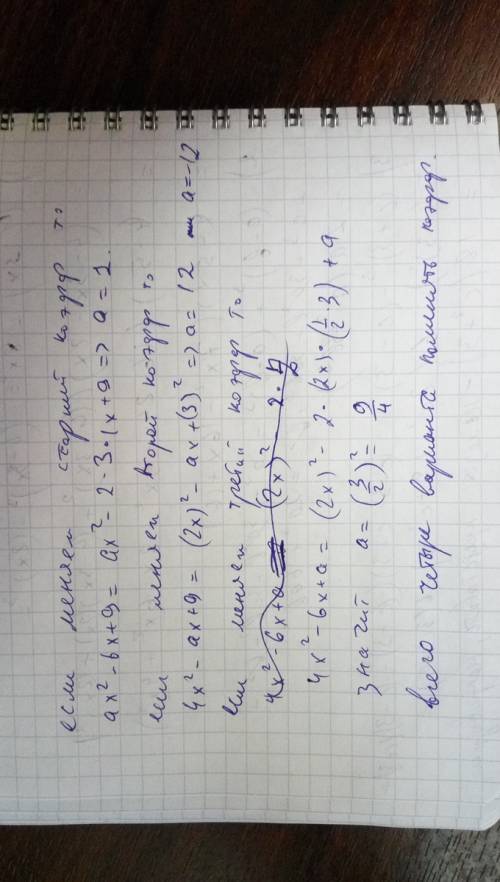 если меняем старший коэфф то
ax² - 6x + 9 = ax² - 2·3·1x + 9 => a = 1.
если меняем второй коэфф то
4x² - ax + 9 = (2x)² - ax + (3)² => a = 12 или a = -12
если меняем третий коэфф то
4x² - 6x + a = (2x)² - 2·
4x² - 6x + a = (2x)² - 2·(2x)·(1/2·3) + a
значит a = (3/2)² = 9/4
всего четыре варианта поменять коэфф.